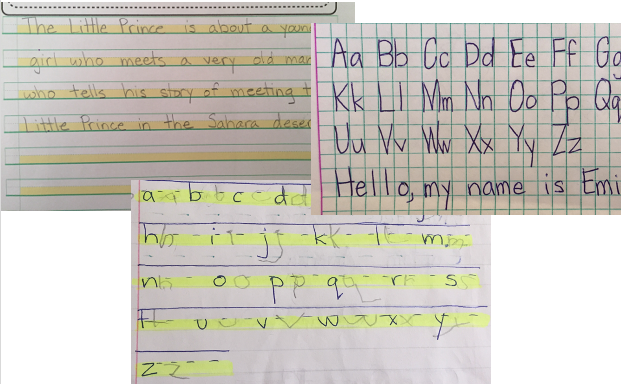 The Little Prince is about a youn
girl who meets a very old man
who tells his story of meeting t
Little Prince in the Sahara deser
Aa Bb Cc Dd Ee Ff Gg
Kk Ll Mm Nn Oo Pp Qq
Uu Vv Ww Xx Yy Zz
Hello, my name is Emi
a a b b c c d d
h h i i j j k k l l m m
n h o o p p q q r r s s
t t u u v v w w x x y y
z z